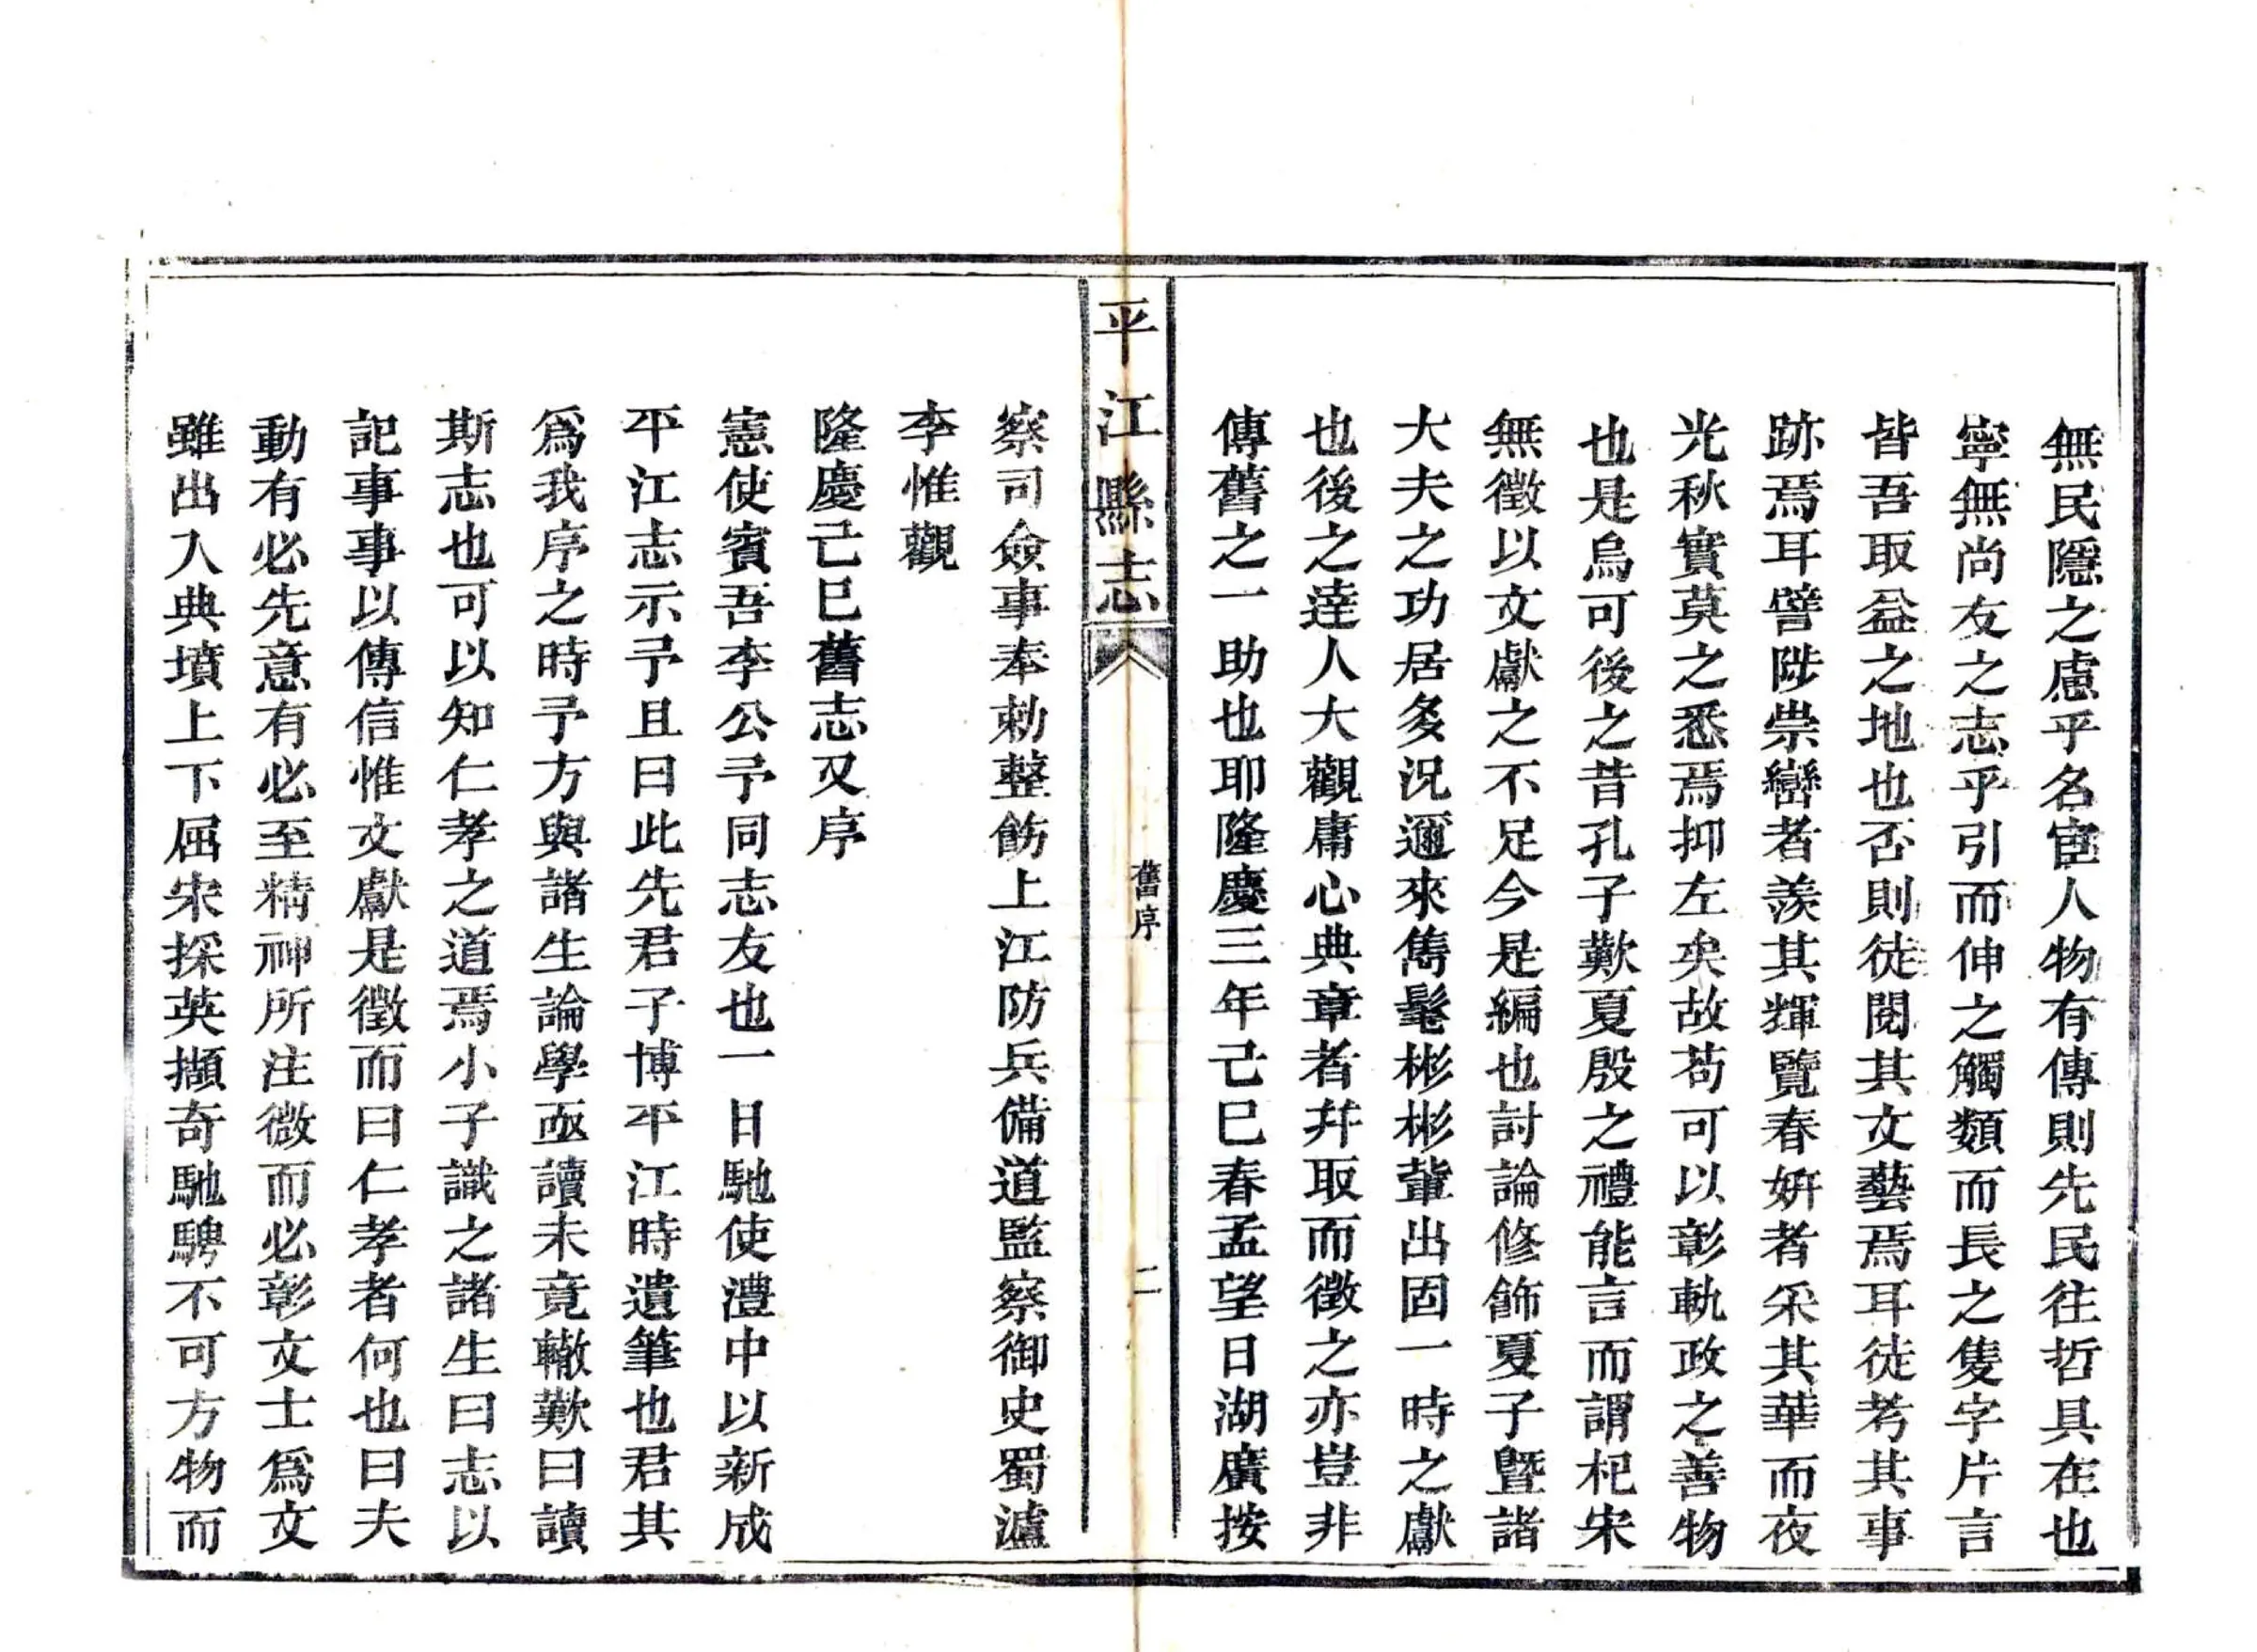 無民隱之慮乎名宦人物有傳則先民往哲具在也
寧無尚友之志乎引而伸之觸類而長之隻字片言
皆吾取益之地也否則徒閱其文藝焉耳徒考其事
跡焉耳譬陟崇巒者羨其輝覽春妍者采其華而夜
光秋實莫之悉焉抑左矣故苟可以彰軌政之善物
也是烏可後之昔孔子歎夏殷之禮能言而謂杞宋
無徵以文獻之不足今是編也討論修飾夏子曁諸
大夫之功居多況邇來雋髦彬彬輩出固一時之獻
也後之達人大觀庸心典章者幷取而徵之亦豈非
傳舊之一助也耶隆慶三年己巳春孟望日湖廣按
平江縣志
舊序
二
察司僉事奉勅整飭上江防兵備道監察御史蜀瀘
李惟觀
隆慶己巳舊志又序
憲使賓吾李公予同志友也一日馳使澧中以新成
平江志示予且曰此先君子博平江時遺筆也君其
爲我序之時予方與諸生論學亟讀未竟輒歎曰讀
斯志也可以知仁孝之道焉小子識之諸生曰志以
記事事以傳信惟文獻是徵而曰仁孝者何也曰夫
動有必先意有必至精神所注微而必彰文士爲文
雖出入典墳上下屈宋採英擷奇馳騁不可方物而